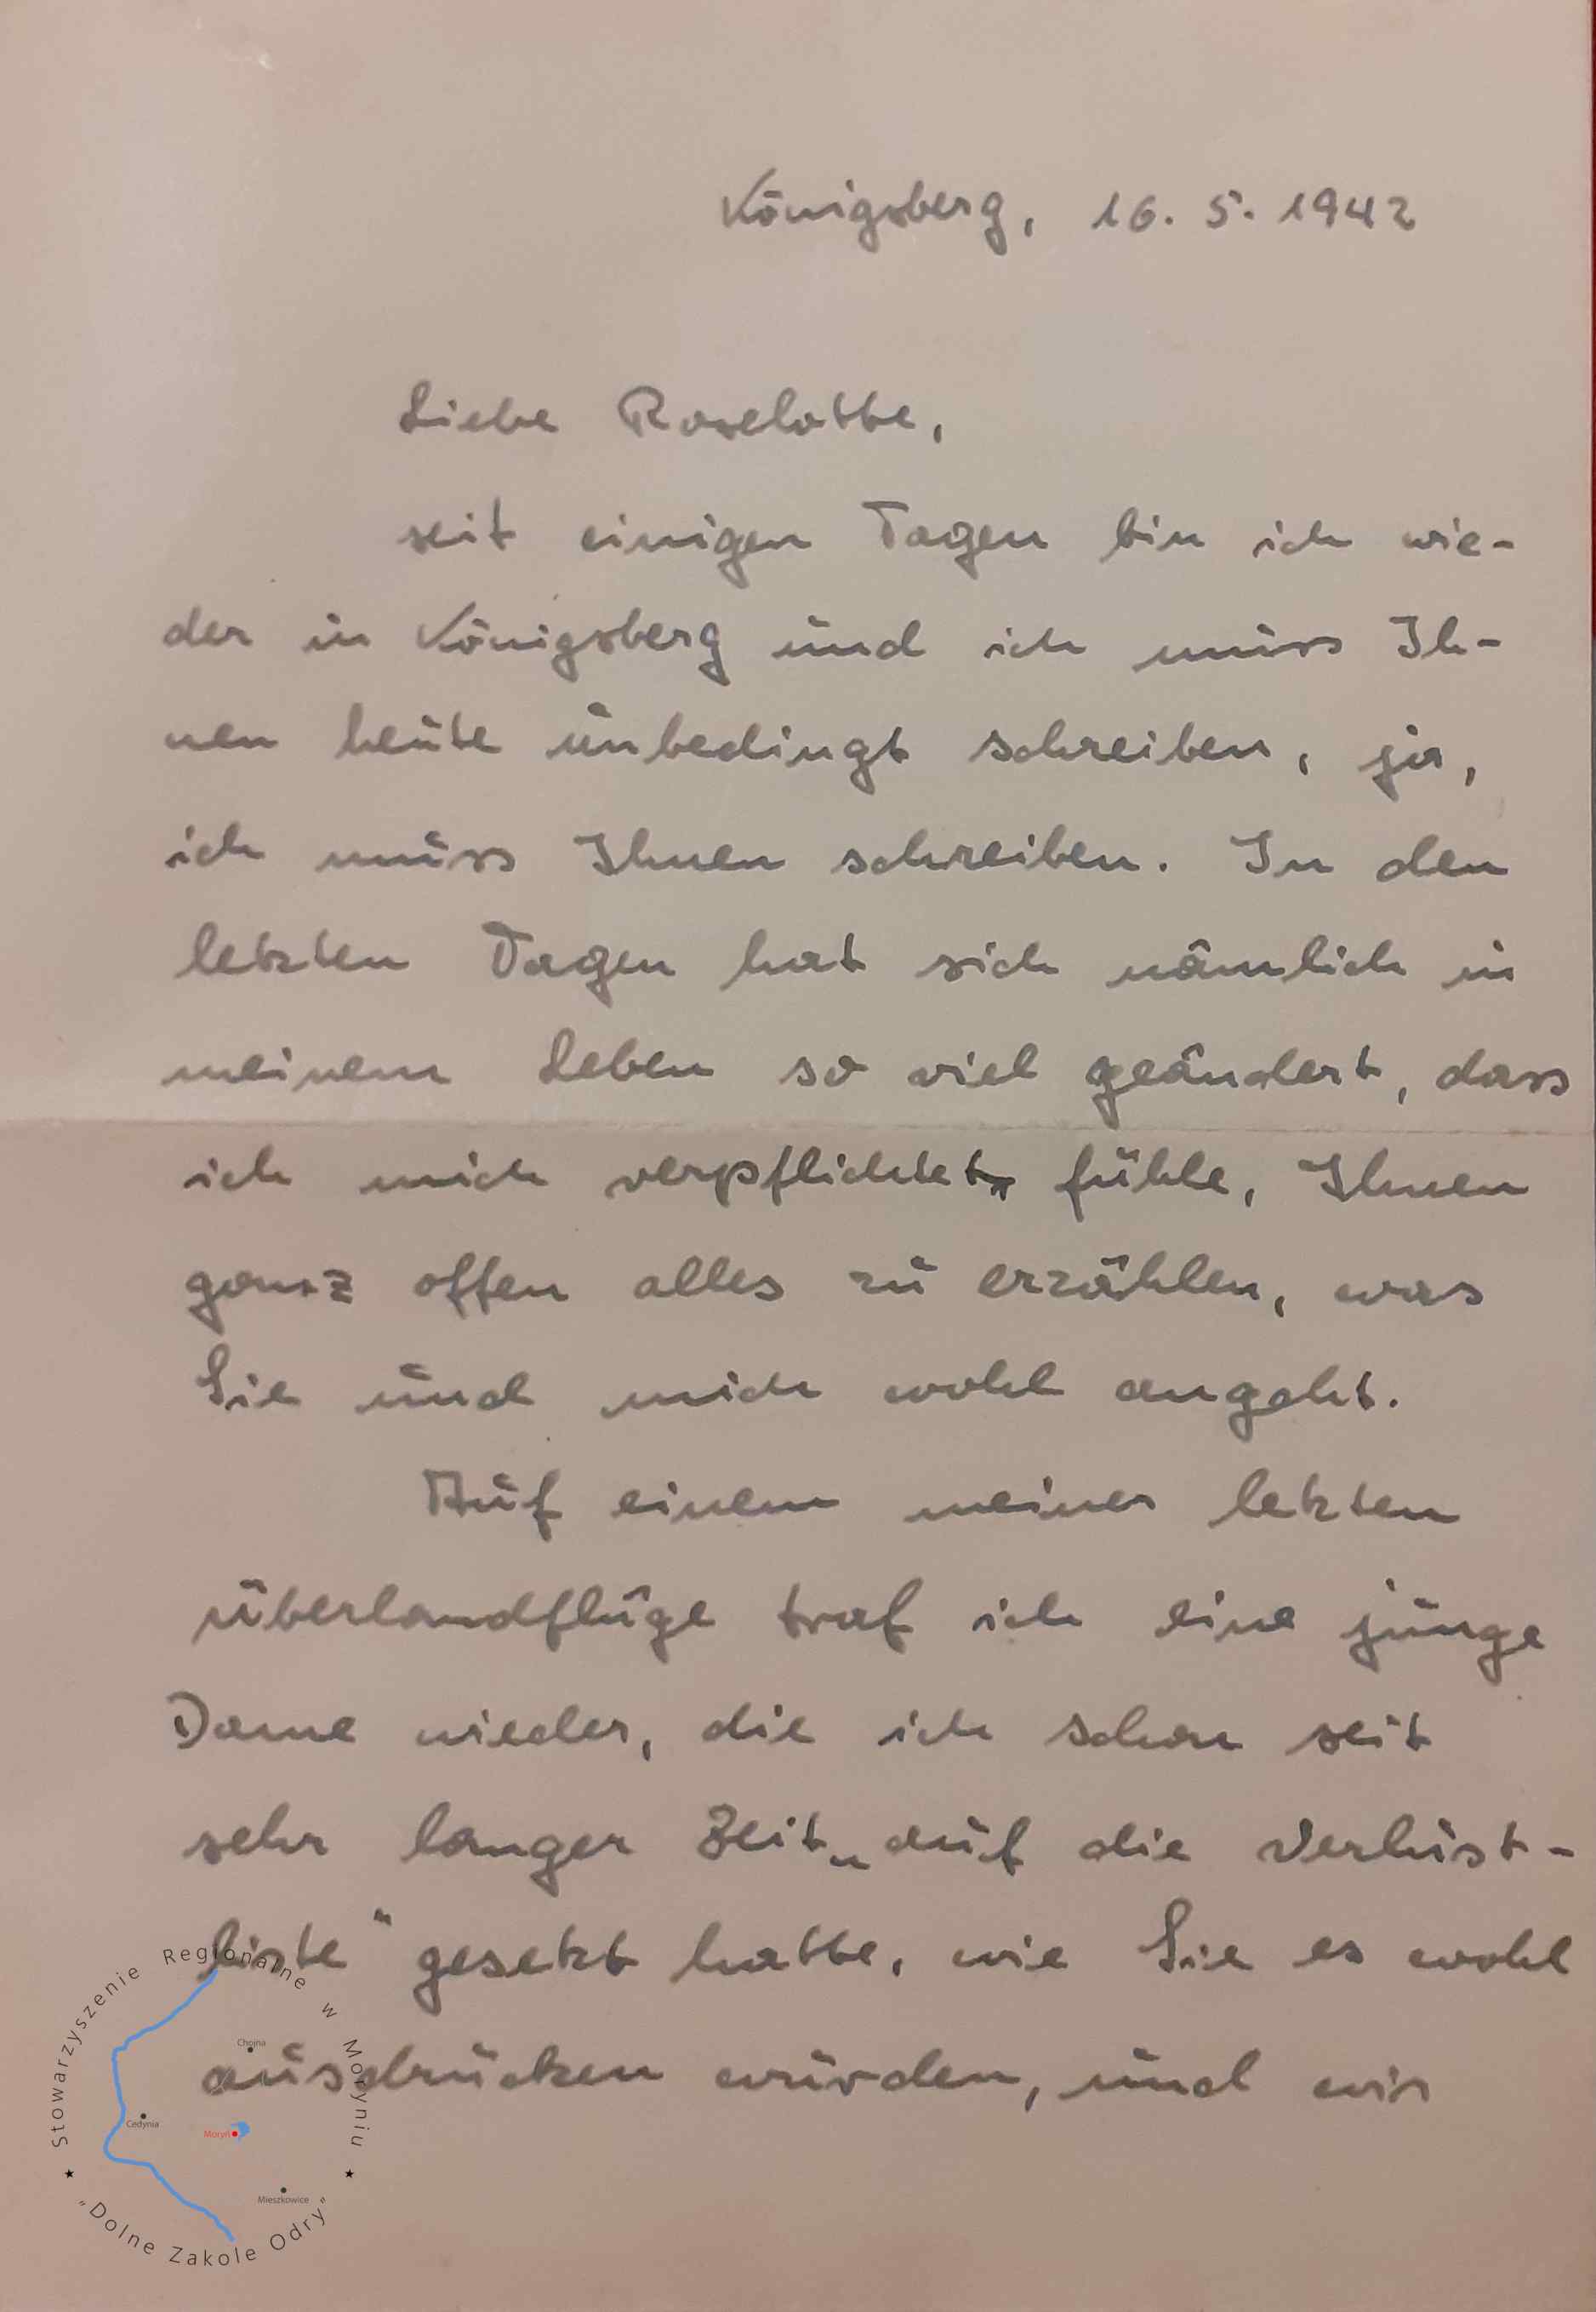 Königsberg, 16. 5. 1942
Liebe Roselotte,
seit einigen Tagen bin ich wie-
der in Königsberg und ich muss Ih-
nen heute unbedingt schreiben, ja,
ich muss Ihnen schreiben. In den
letzten Tagen hat sich nämlich in
meinem Leben so viel geändert, dass
ich mich verpflichtet fühle, Ihnen
ganz offen alles zu erzählen, was
Sie und mich wohl angeht.
Auf einem meiner letzten
Überlandflüge traf ich eine junge
Dame wieder, die ich schon seit
sehr langer Zeit „auf die Verlust-
liste" gesetzt hatte, wie Sie es wohl
ausdrücken würden, und wir
Stowarzyszenie Regionalne w Moryniu
Chojna
Cedynia
Moryń
Mieszkowice
"Dolne Zakole Odry"